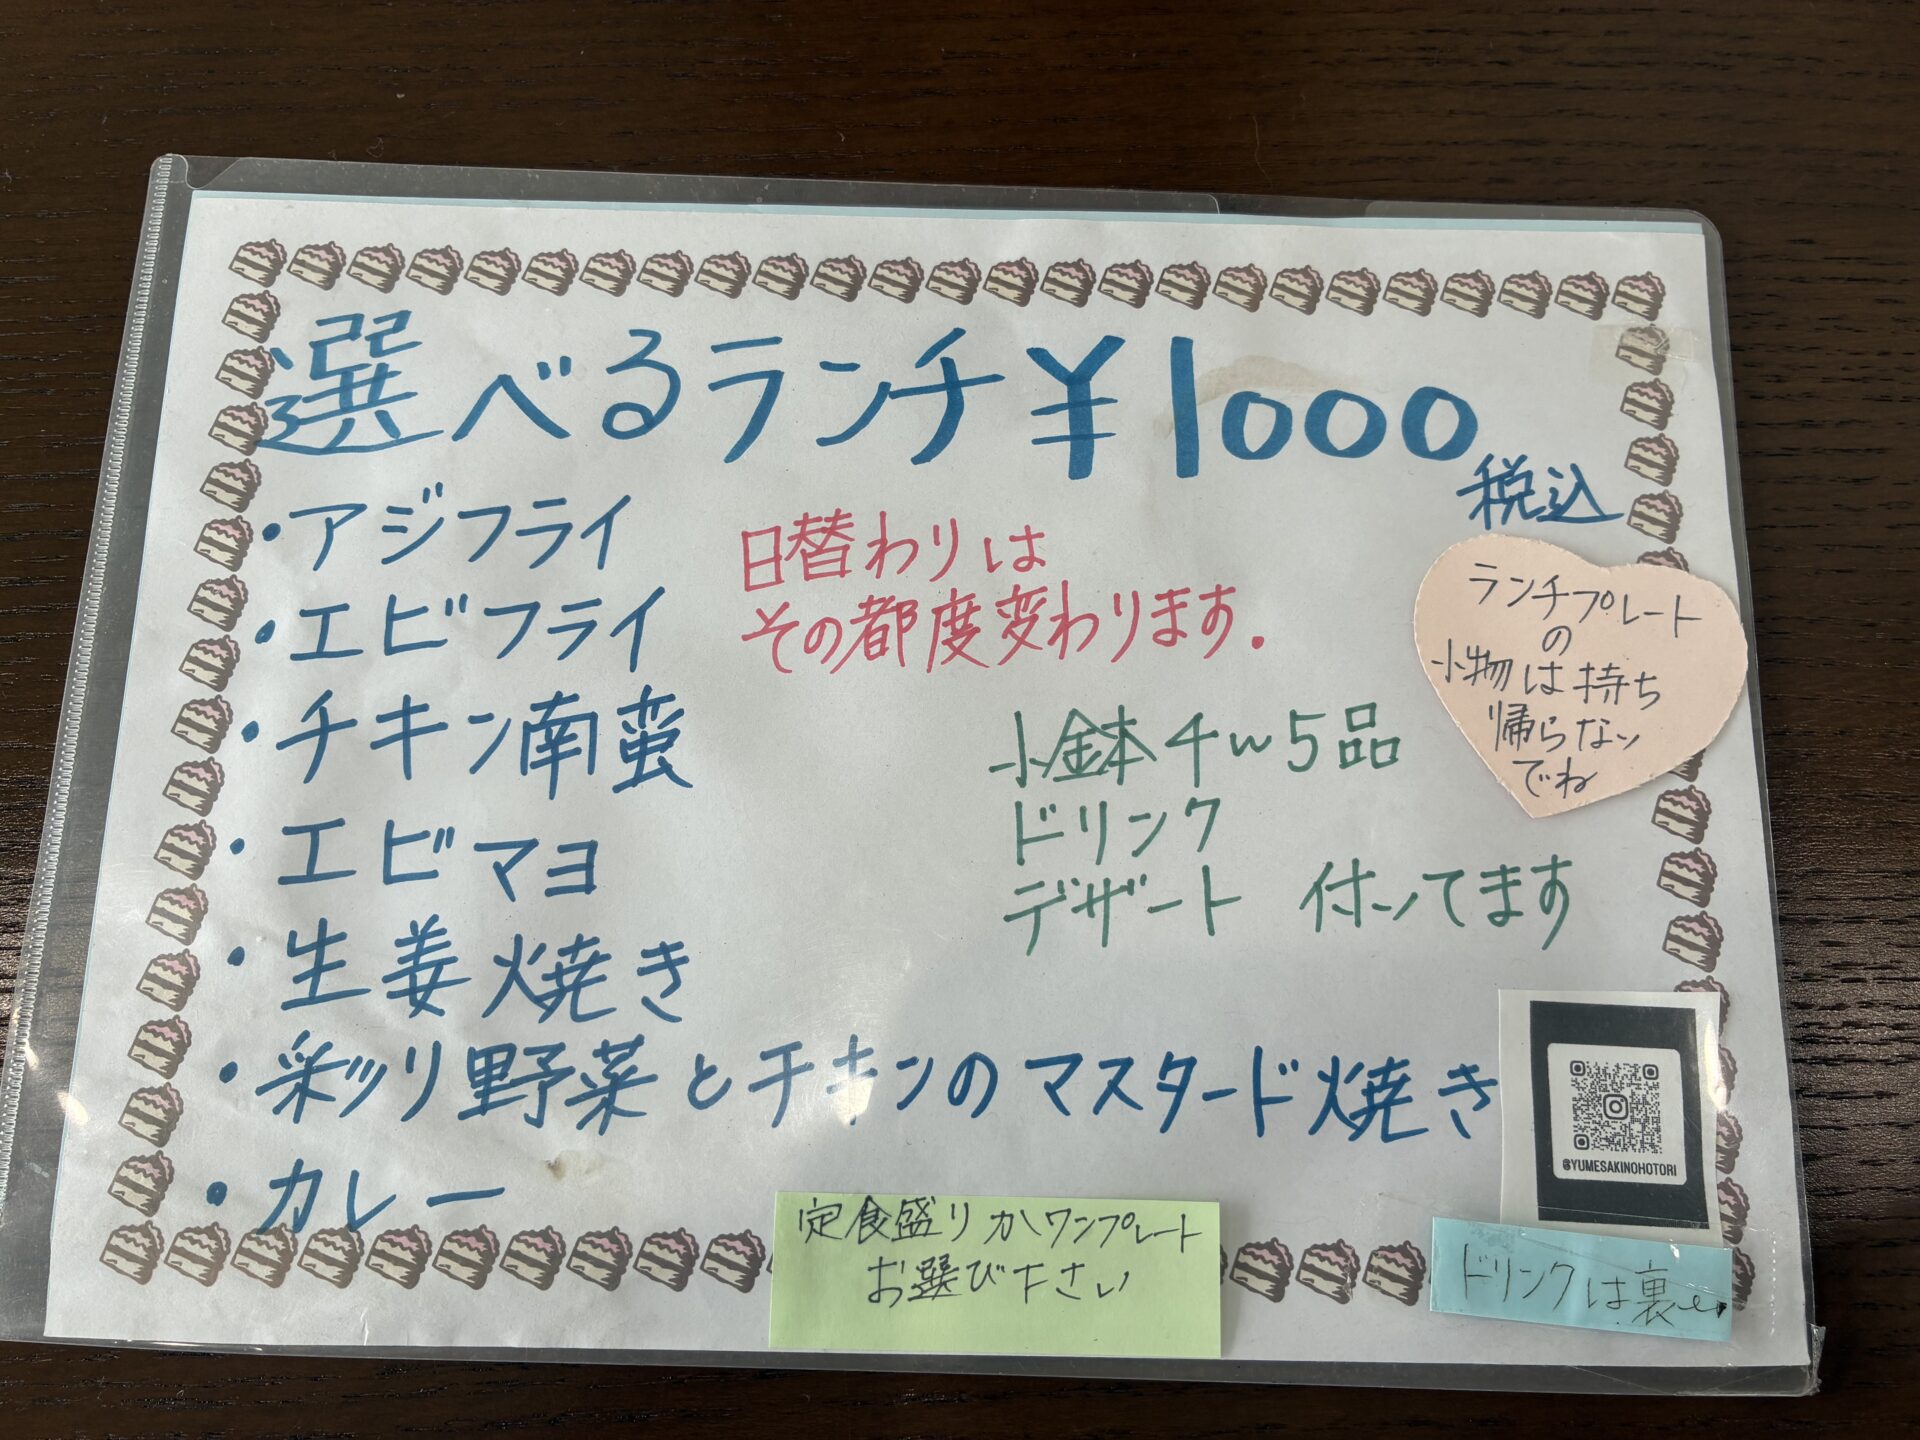 選べるランチ¥1000
税込
・アジフライ
・エビフライ
・チキン南蛮
・エビマヨ
・生姜焼き
・彩り野菜とチキンのマスタード焼き
・カレー
日替わりは
その都度変わります.
小鉢4〜5品
ドリンク
デザート 付いてます
ランチプレート
の
小物は持ち
帰らない
でね
@YUMESAKINOHOTORI
定食盛りかワンプレート
お選び下さい
ドリンクは裏